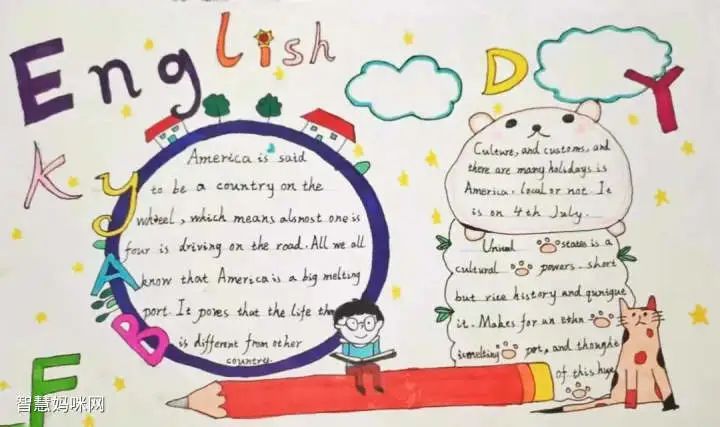 English
D
Y
K
Y
A
B
F
America is said
to be a country on the
wheel, which means alsnost one is
four is driving on the road. All we all
know that America is a big melting
port. It poves that the life th
is different from other
country.
Culture, and customs, and
there are many holidays is
America. local or not It
is on 4th July.
Unived states is a
cultural powers. short
but rice history and qunique
it. Makes for an Ethn
is melting pot, and thought
of this huge
智慧妈咪网